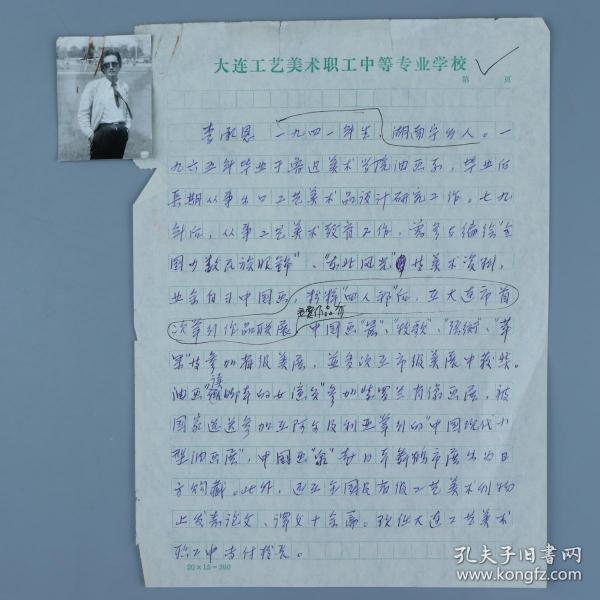 大连工艺美术职工中等专业学校
第 页
李承恩 一九四一年生,湖南宁乡人。一
九六五年毕业于鲁迅美术学院油画系,毕业后
长期从事出口工艺美术品设计研究工作。七九
年后,从事工艺美术教育工作,曾参与编绘"全
国少数民族服饰"、"东北风光"等美术资料,
业余自习中国画,粉粹"四人邦"后,在大连市首
主要作品有
次举行作品联展,中国画"鹰"、"牧歌"、"苹
果"等参加省级美展,並多次在市级美展中获奖。
油画"骑脚车的女演员"参加 兰肖像画展,被
国家选送参加在阿尔及利亚举行的"中国现代小
型油画展",中国画"翁"赴日本舞鹤市展出为日
方购藏。此外,还在全国及省级工艺美术刊物
上发表论文、译文十余篇。现任大连工艺美术
职工中专付校长。
20×15=300
孔夫子旧书网
www.kongfz.com